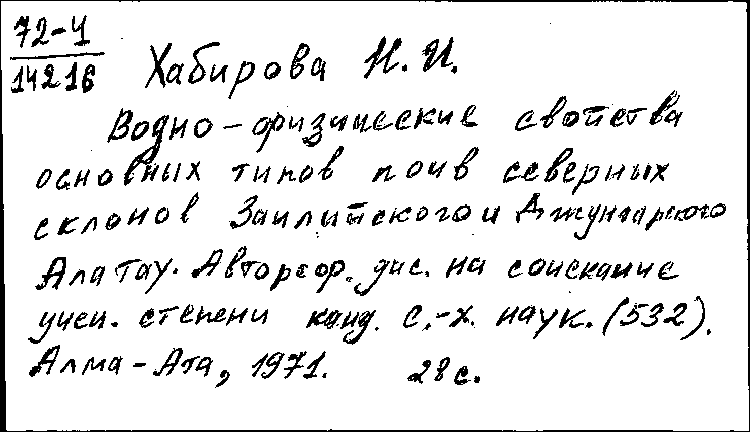 72-4
14216
Хабирова Н. И.
Водно-физические свойства
основных типов почв северных
склонов Заилийского и Джунгарского
Алатау. Автореф. дис. на соискание
учен. степени канд. с.-х. наук. (532).
Алма-Ата, 1971. 28 с.